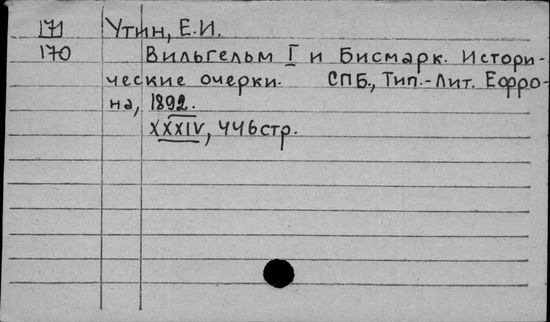 171 Утин, Е.И.
170 Вильгельм I и Бисмарк. Истори-
ческие очерки. СПБ., Тип.-Лит. Ефро-
на, 1892.
XXXIV, 446стр.